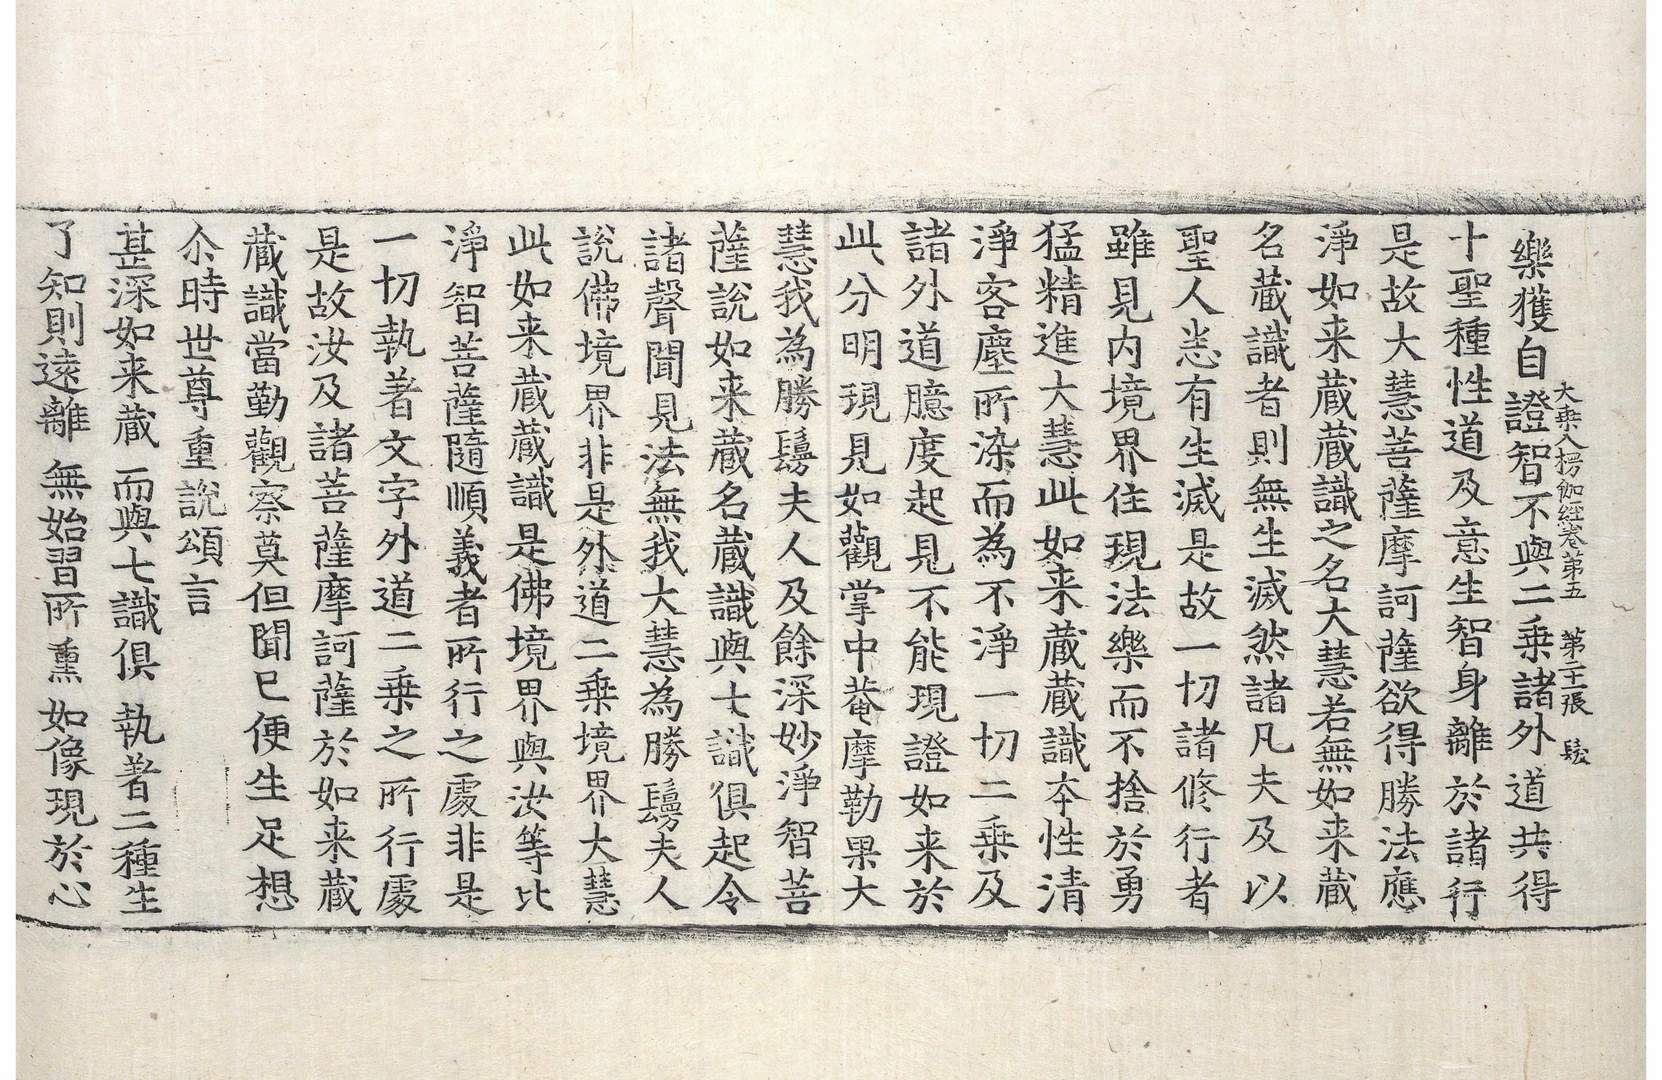 大乘入楞伽經卷第五　第二十一張　髢
樂獲自證智不與二乘諸外道共得
十聖種性道及意生智身離於諸行
是故大慧菩薩摩訶薩欲得勝法應
淨如来蔵蔵識之名大慧若無如来蔵
名蔵識者則無生滅然諸凡夫及以
聖人悉有生滅是故一切諸修行者
雖見内境界住現法樂而不捨於勇
猛精進大慧此如来蔵蔵識本性清
淨客塵所染而為不淨一切二乘及
諸外道臆度起見不能現證如来於
此分明現見如觀掌中菴摩勒果大
慧我為勝鬘夫人及餘深妙淨智菩
薩說如来蔵名蔵識與七識俱起令
諸聲聞見法無我大慧為勝鬘夫人
說佛境界非是外道二乘境界大慧
此如来蔵蔵識是佛境界與汝等比
淨智菩薩隨順義者所行之處非是
一切執著文字外道二乘之所行處
是故汝及諸菩薩摩訶薩於如来蔵
蔵識當勤觀察莫但聞已便生足想
尒時世尊重說頌言
甚深如来蔵　而與七識俱　執著二種生
了知則遠離　無始習所熏　如像現於心